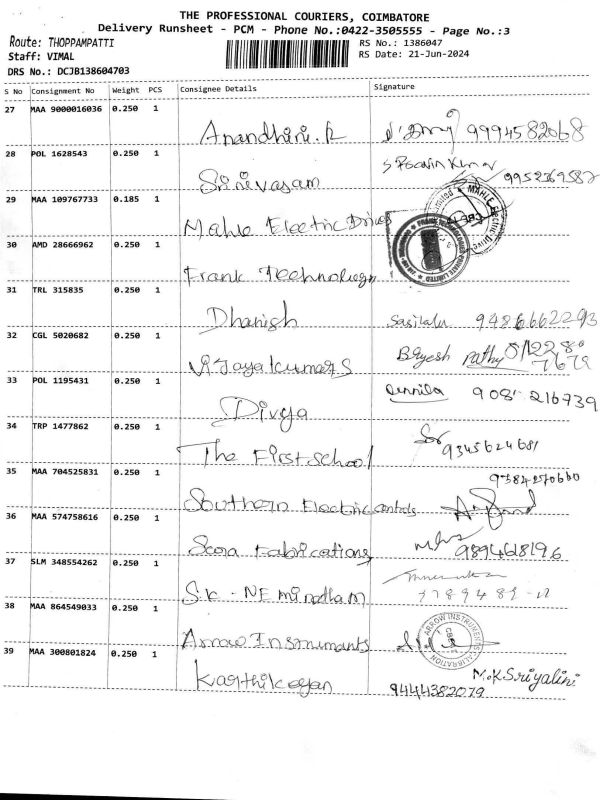 THE PROFESSIONAL COURIERS, COIMBATORE
Delivery Runsheet - PCM - Phone No.:0422-3505555 - Page No.:3
Route: THOPPAMPATTI RS No.: 1386047
Staff: VIMAL RS Date: 21-Jun-2024
DRS No.: DCJB138604703
S No Consignment No Weight PCS Consignee Details Signature
27 MAA 9000016036 0.250 1
Anandhini.R 9994582068
28 POL 1628543 0.250 1
Srinivasam 9952369587
29 MAA 109767733 0.185 1
Mahle Electric Drives
30 AMD 28666962 0.250 1
Frank Technology
31 TRL 315835 0.250 1
Dhanish Sasikala 9486662293
32 CGL 5020682 0.250 1
Vijayakumar S Pathy
33 POL 1195431 0.250 1
Divya
34 TRP 1477862 0.250 1
The First School 9345624681
35 MAA 704525831 0.250 1
9384270660
Southern Electric controls
36 MAA 574758616 0.250 1
Fabrications 9894618196
37 SLM 348554262 0.250 1
S.K -
38 MAA 864549033 0.250 1
Arrow Instrumants ARROW INSTRUMENTS
CALIBRATION
39 MAA 300801824 0.250 1
Karthikeyan M.K.Sriyalini
9444382079